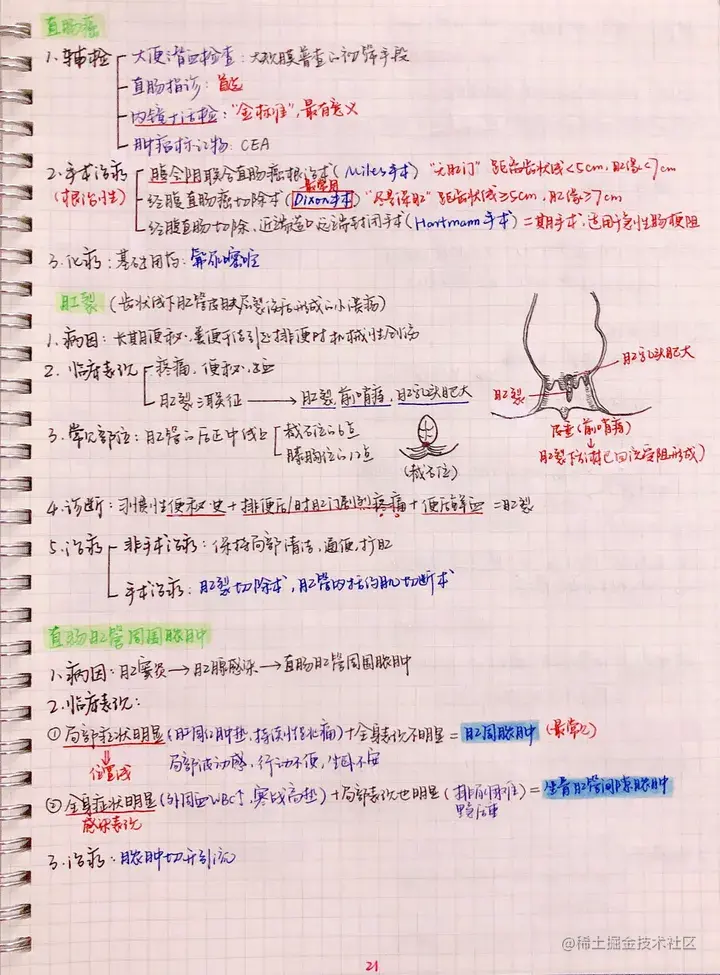 直肠癌
1. 辅检 大便潜血检查：大规模普查的初筛手段
直肠指诊：首选
内镜+活检："金标准"，最有意义
肿瘤标记物：CEA
2. 手术治疗 腹会阴联合直肠癌根治术(Miles手术) "无肛门" 距离齿状线<5cm，肛缘<7cm
最常用
(根治性) 经腹直肠癌切除术(Dixon手术) "尽量保肛" 距齿状线≥5cm，肛缘≥7cm
经腹直肠切除，近端造口远端封闭手术(Hartmann手术) 二期手术，适用于急性肠梗阻
3. 化疗：基础用药：氟尿嘧啶
肛裂 (齿状线下肛管皮肤层裂伤后形成的小溃疡)
1. 病因：长期便秘，粪便干结引起排便时机械性创伤
2. 临床表现 疼痛，便秘，出血
肛裂三联征 → 肛裂，前哨痔，肛乳头肥大
肛乳头肥大
肛裂
皮赘(前哨痔)
肛裂下端淋巴回流受阻形成)
3. 常见部位：肛管的后正中线上 截石位的6点
膝胸位的12点
(截石位)
4. 诊断：习惯性便秘史+排便后/时肛门剧烈疼痛+便后鲜血=肛裂
5. 治疗 非手术治疗：保持局部清洁，通便，扩肛
手术治疗：肛裂切除术，肛管内括约肌切断术
直肠肛管周围脓肿
1. 病因：肛窦炎→肛腺感染→直肠肛管周围脓肿
2. 临床表现：
① 局部症状明显(肛周红肿热，持续性跳痛)+全身表现不明显=肛周脓肿 (最常见)
位置浅 局部波动感，行动不便，坐卧不安
② 全身症状明显(外周血WBC↑，寒战高热)+局部表现也明显(排尿困难
里急后重)=坐骨肛管间隙脓肿
感染表现
3. 治疗：脓肿切开引流
@稀土掘金技术社区
21